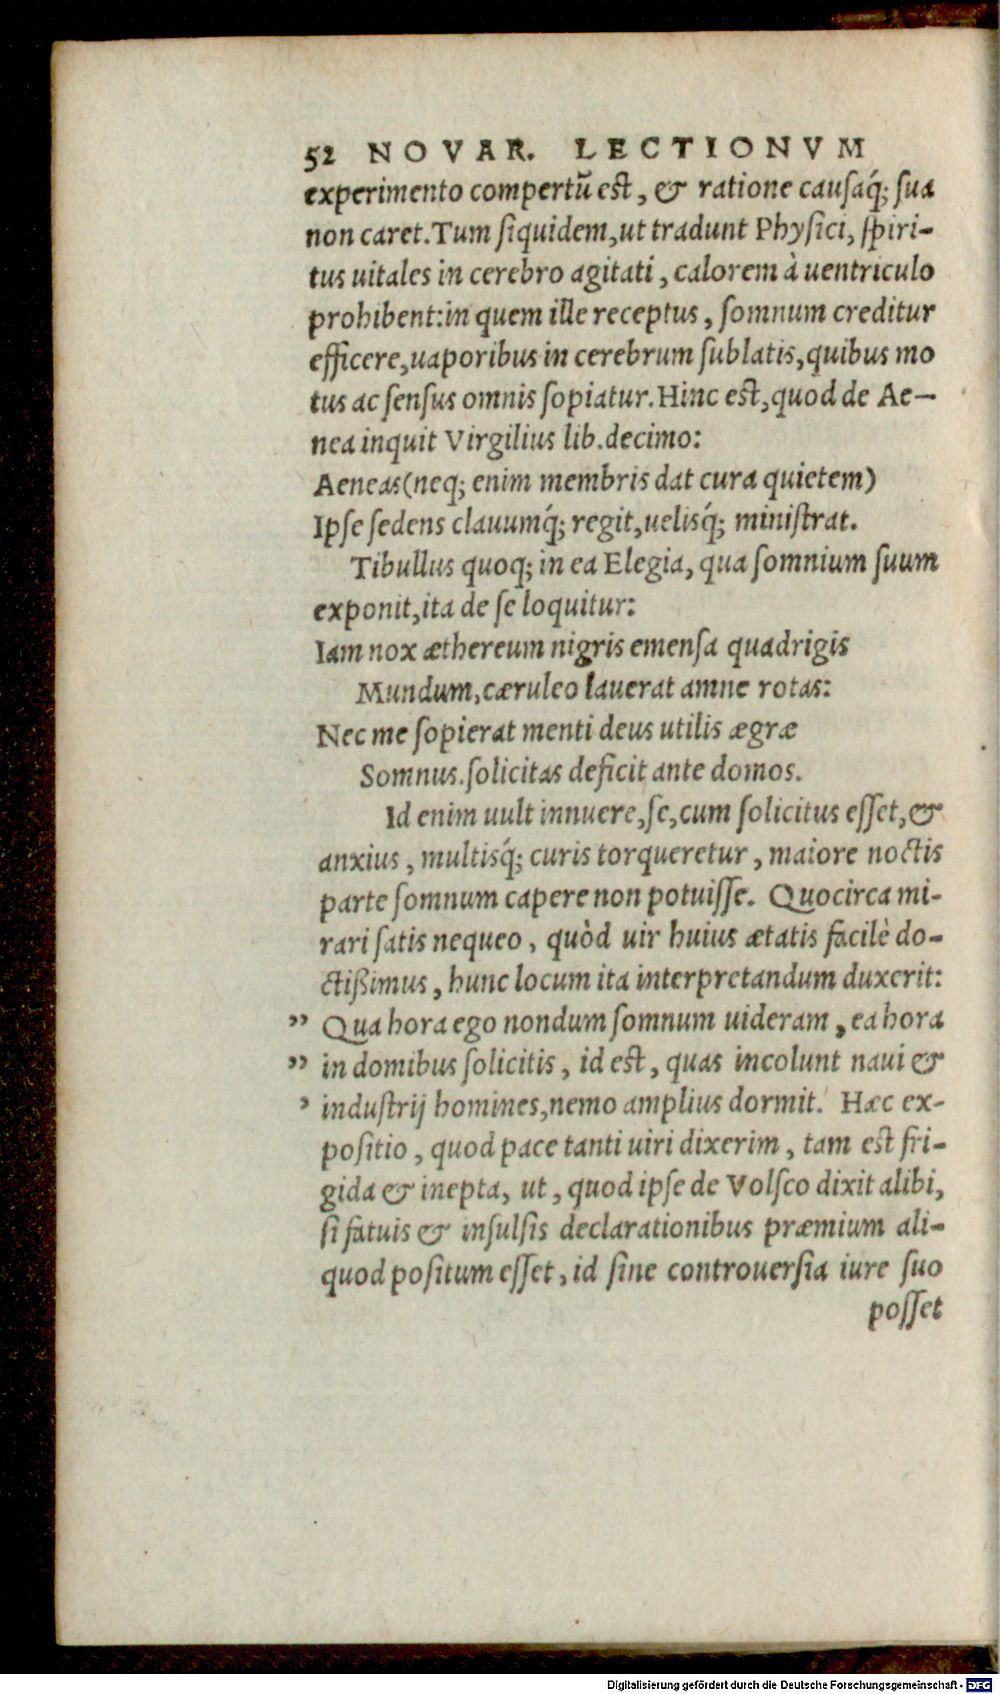 52 NOVAR. LECTIONVM
experimento compertũ est, & ratione causaq́; sua
non caret. Tum siquidem, ut tradunt Physici, spiri-
tus uitales in cerebro agitati, calorem à uentriculo
prohibent: in quem ille receptus, somnum creditur
efficere, uaporibus in cerebrum sublatis, quibus mo
tus ac sensus omnis sopiatur. Hinc est, quod de Ae-
nea inquit Virgilius lib. decimo:
Aeneas (neq; enim membris dat cura quietem)
Ipse sedens clauumq́; regit, uelisq́; ministrat.
Tibullus quoq; in ea Elegia, qua somnium suum
exponit, ita de se loquitur:
Iam nox æthereum nigris emensa quadrigis
Mundum, cæruleo lauerat amne rotas:
Nec me sopierat menti deus utilis ægræ
Somnus. solicitas deficit ante domos.
Id enim uult innuere, se, cum solicitus esset, &
anxius, multisq́; curis torqueretur, maiore noctis
parte somnum capere non potuisse. Quocirca mi-
rari satis nequeo, quòd uir huius ætatis facilè do-
ctißimus, hunc locum ita interpretandum duxerit:
" Qua hora ego nondum somnum uideram, ea hora
" in domibus solicitis, id est, quas incolunt naui &
' industrij homines, nemo amplius dormit. Hæc ex-
positio, quod pace tanti uiri dixerim, tam est fri-
gida & inepta, ut, quod ipse de Volsco dixit alibi,
si fatuis & insulsis declarationibus præmium ali-
quod positum esset, id sine controuersia iure suo
posset
Digitalisierung gefördert durch die Deutsche Forschungsgemeinschaft - DFG